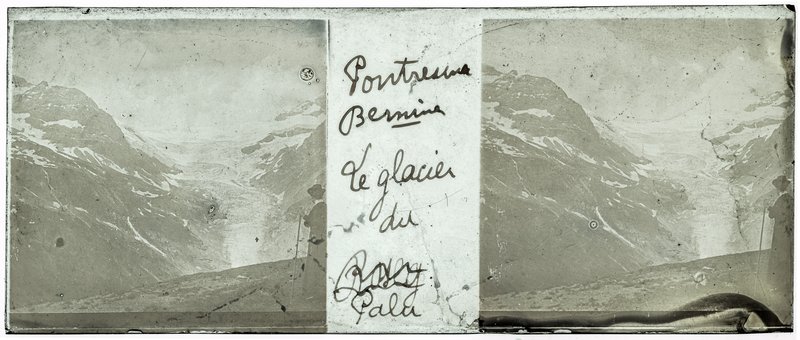 Pontresina
Bernina
Le glacier
du
Palu